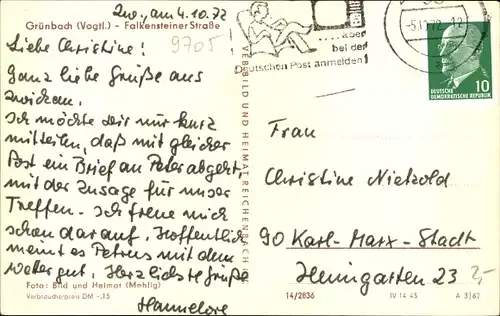 Zw., am 4.10.72
Grünbach (Vogtl.) - Falkensteiner Straße
9705
Liebe Christine!
Ganz liebe Grüße aus
Zwickau.
Ich möchte dir nur kurz
mitteilen, daß mit gleicher
Post ein Brief an Peter abgeht,
mit der Zusage für unser
Treffen. Ich freue mich
schon darauf. Hoffentlich
meint es Petrus mit dem
Wetter gut. Herzlichste Grüße
Hannelore
Foto: Bild und Heimat (Mehlig)
Verbraucherpreis DM -.15
VEB BILD UND HEIMAT REICHENBACH
... aber
bei der
Deutschen Post anmelden!
-5.10.72.-12
10
DEUTSCHE
DEMOKRATISCHE REPUBLIK
Frau
Christine Nietzold
90 Karl-Marx-Stadt
Heimgarten 23
2,-
14/2836
IV 14 45
A 3/62